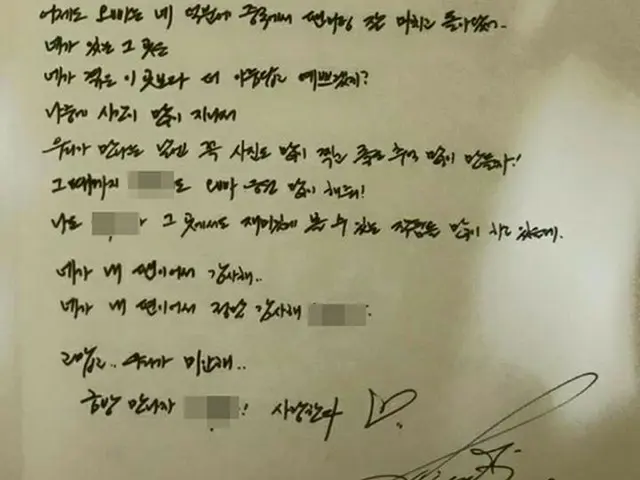 어제도 오빠는 네 덕분에 중국에서 팬미팅 잘 마치고 돌아왔어..
네가 있는 그 곳은
네가 겪은 이 곳보다 더 아름답고 예쁘겠지?
나중에 시간이 많이 지나서
우리가 만나는 날엔 꼭 사진도 많이 찍고 좋은 추억 많이 만들자!
그때까지 도 오빠 응원 많이 해줘!
나도 그 곳에서도 재미있게 볼 수 있는 작품들 많이 하고 있을게.
네가 내 팬이어서 감사해..
네가 내 팬이어서 정말 감사해
고맙고.. 오빠가 미안해..
금방 만나자 ! 사랑한다